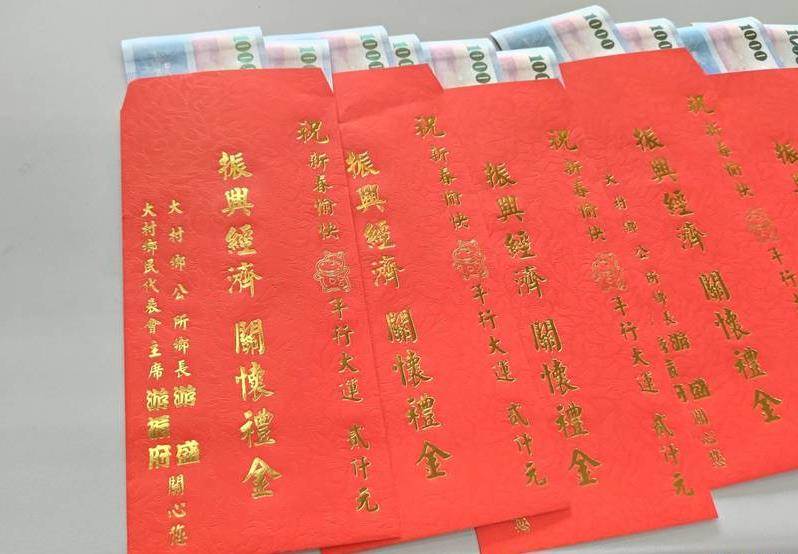 1000
1000
1000
1000
1000
1000
1000
1000
1000
祝新春愉快 牛行大運 貳仟元
振興經濟 關懷禮金
大村鄉公所鄉長 游盛 關心您
大村鄉民代表會主席 游振府
祝新春愉快 牛行大運 貳仟元
振興經濟 關懷禮金
祝新春愉快 牛行大運 貳仟元
振興經濟 關懷禮金
您
祝新春愉快 牛行大
振興經濟 關懷禮金
大村鄉公所鄉長 游盛 關心您
振